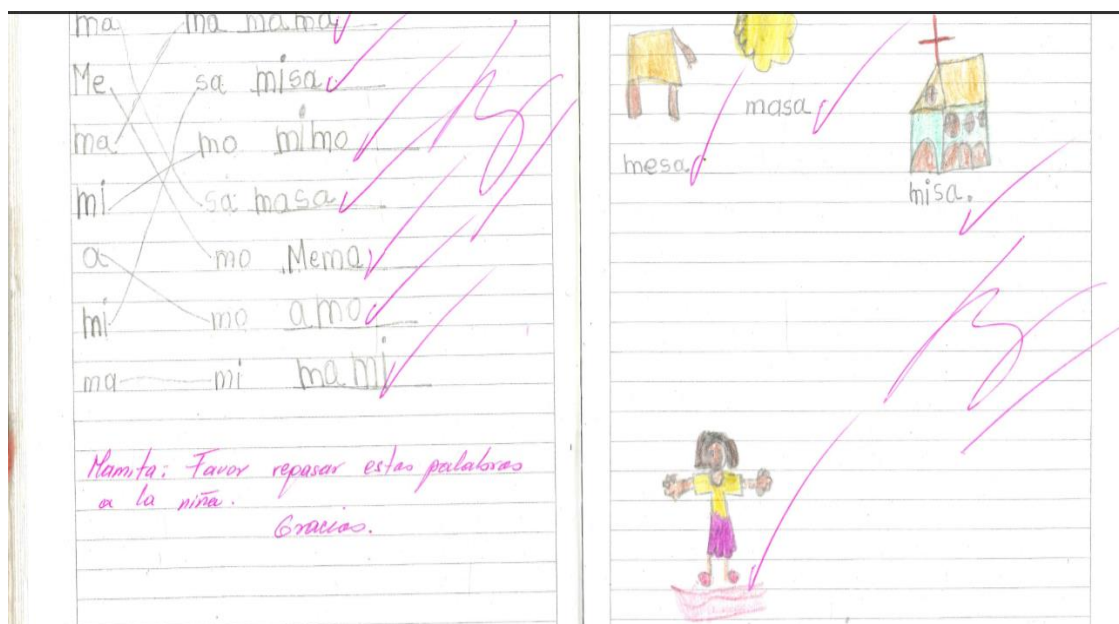 ma ma mama
Me sa misa
ma mo mimo
mi sa masa
a mo Memo
mi mo amo
ma mi mami
Mamita: Favor repasar estas palabras
a la niña.
Gracias.
masa
mesa.
misa.